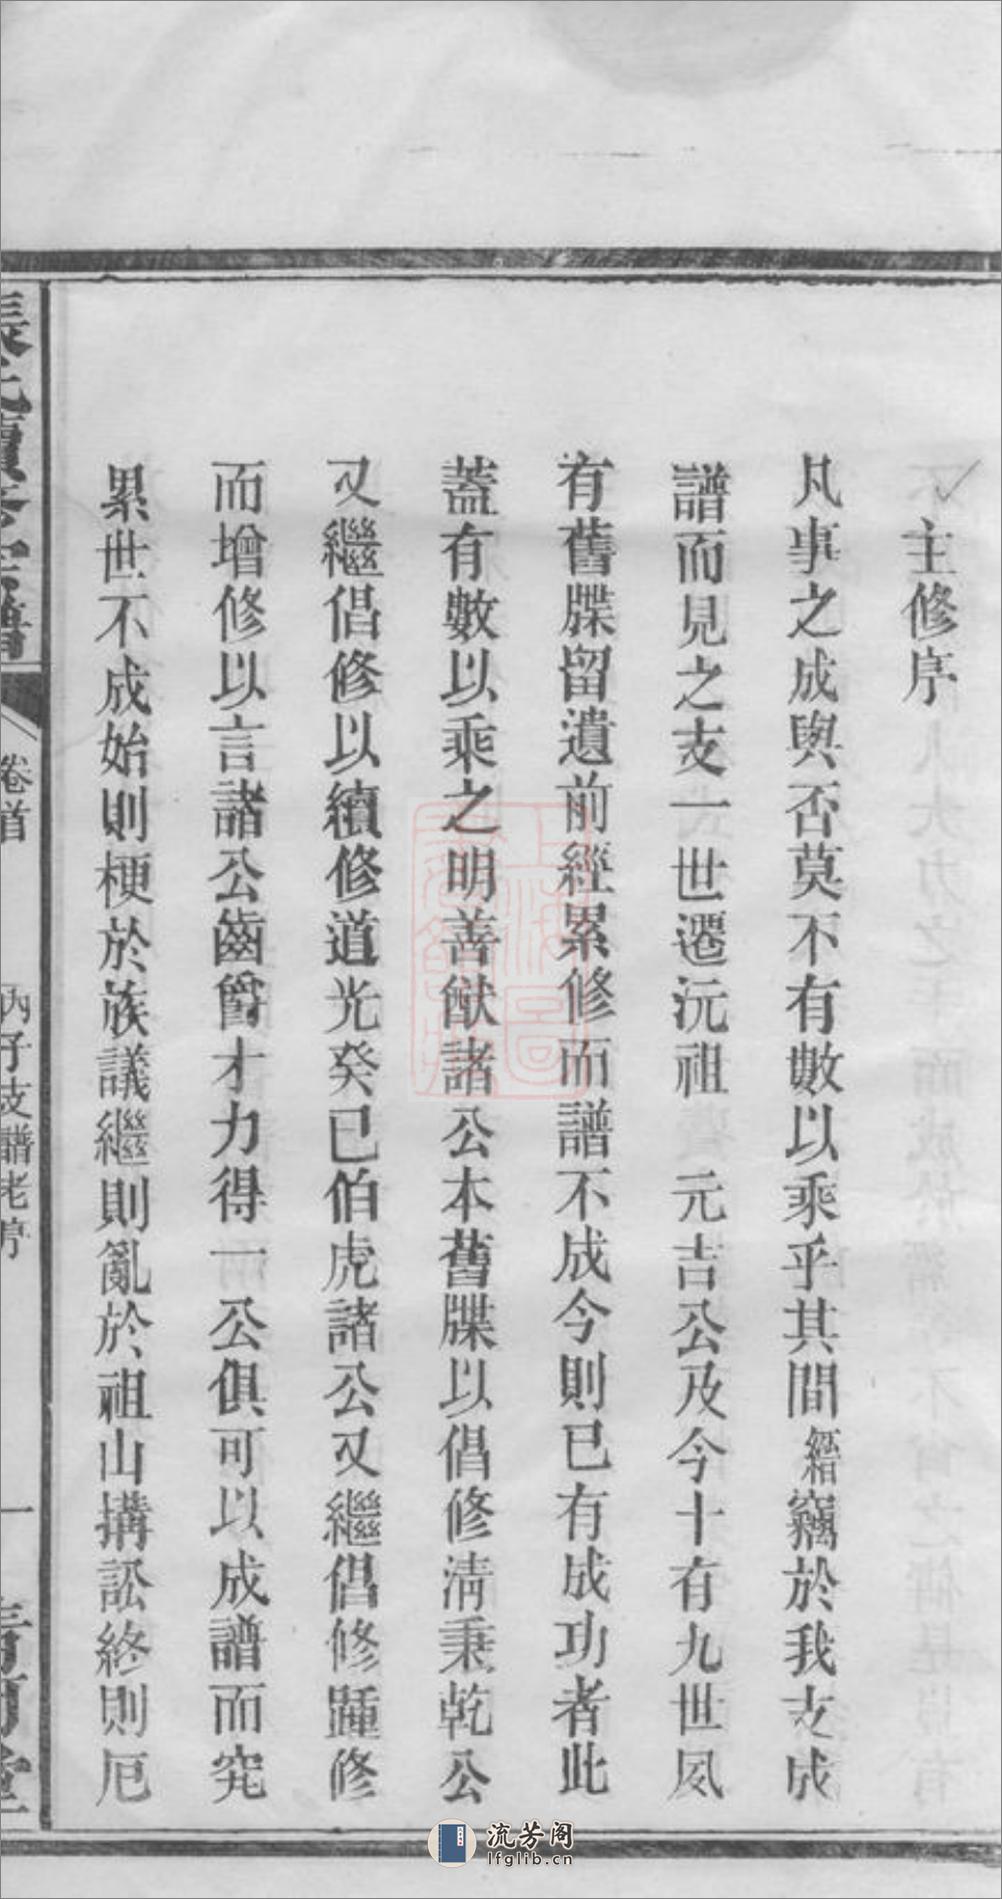 主修序
凡事之成與否莫不有數以乘乎其間縉竊於我支成
譜而見之支一世遷沅祖　元吉公及今十有九世夙
有舊牒留遺前經累修而譜不成今則已有成功者此
蓋有數以乘之明善猷諸公本舊牒以倡修淸秉乾公
又繼倡修以續修道光癸巳伯虎諸公又繼倡修踵修
而增修以言諸公齒爵才力得一公俱可以成譜而究
累世不成始則梗於族議繼則亂於祖山搆訟終則厄
張氏續修宗譜
卷首
丙子支譜老序
一
上海圖書館藏
流芳阁
lfglib.cn